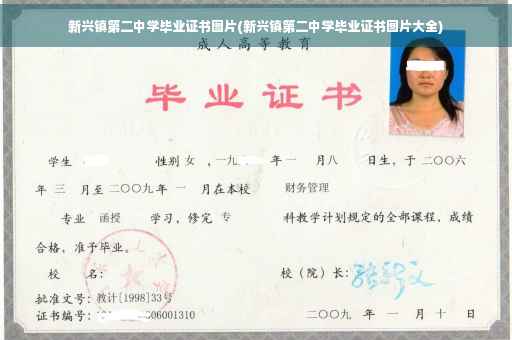 新兴镇第二中学毕业证书图片(新兴镇第二中学毕业证书图片大全)
成人高等教育
毕业证书
学生 性别 女 ，一九 年 一 月八 日生，于 二〇〇六
年 三 月至 二〇〇九 年 一 月在本校 财务管理
专业 函授 学习，修完 专 科教学计划规定的全部课程，成绩
合格，准予毕业。
校 名： 校（院）长：
批准文号：教计[1998]33号
证书编号： 06001310 二〇〇九 年 一 月 十 日